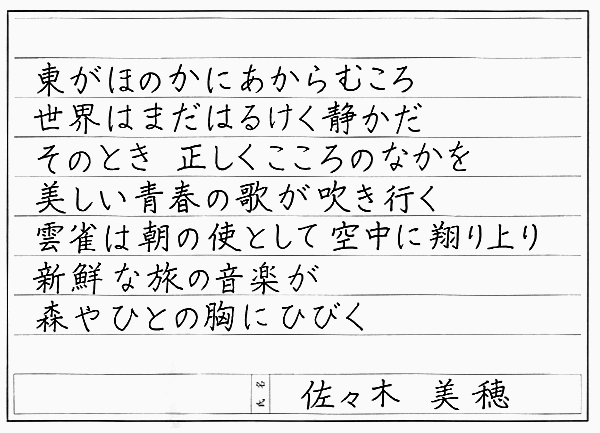 東がほのかにあからむころ
世界はまだはるけく静かだ
そのとき 正しくこころのなかを
美しい青春の歌が吹き行く
雲雀は朝の使として空中に翔り上り
新鮮な旅の音楽が
森やひとの胸にひびく
氏名 佐々木 美穂